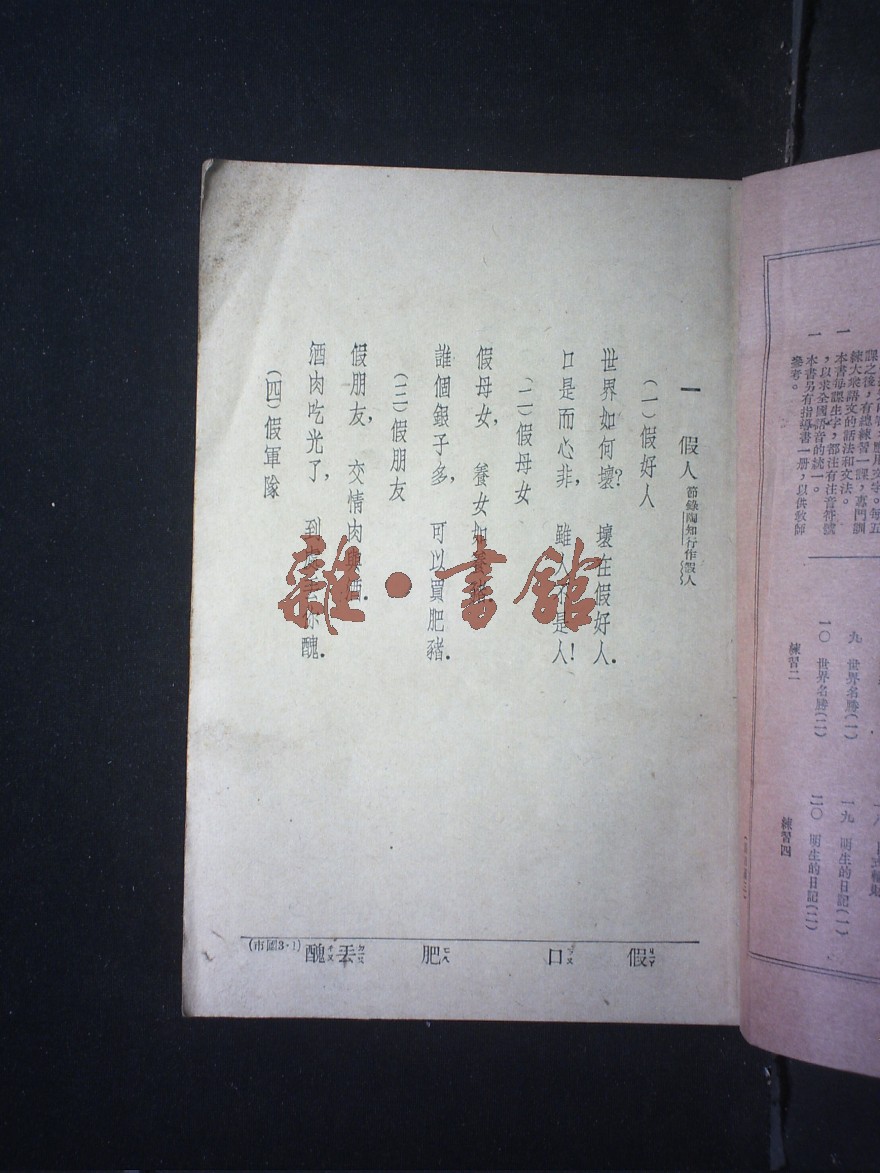 課之後,有總練習一課,專門訓
練大衆語文的話法和文法。
一 本書每課生字,都注有注音符號
,以求全國語音的統一。
一 本書另有指導書一册,以供教師
參考。
九 世界名勝(一)
一〇 世界名勝(二)
練習二
一九 明生的日記(一)
二〇 明生的日記(二)
練習四
一 假人 節錄陶知行作假人
(一)假好人
世界如何壞? 壞在假好人.
口是而心非, 雖人不是人!
(二)假母女
假母女, 養女如養
誰個銀子多, 可以買肥豬.
(三)假朋友
假朋友, 交情肉與酒.
酒肉吃光了, 到處丟你醜.
(四)假軍隊
假ㄐㄧㄚ
口ㄎㄡ
肥ㄈㄟ
丟ㄉㄧㄡ
醜ㄔㄡ
(市國3·1)
雜·書館